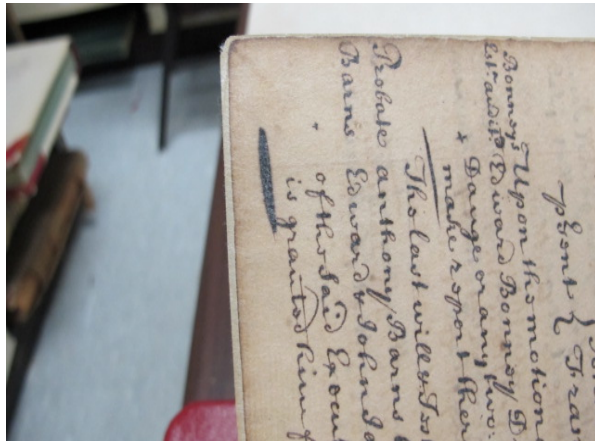 psent { Fran
Bonneys Upon the motion
Est. Edward Bonney D
Darge or any two
make report ther
The last will & Tes
Probate anthony Barns
Barns Edward & John
of the said Execu
is granted him